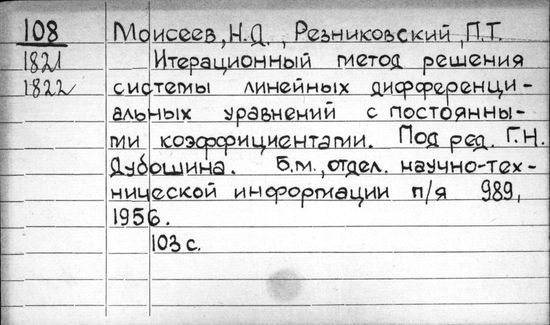 108 Моисеев, Н.Д., Резниковский, П.Т.
1821 Итерационный метод решения
1822 системы линейных дифференци-
альных уравнений с постоянны-
ми коэффициентами. Под ред. Г.Н.
Дубошина. Б.м., отдел. научно-тех-
нической информации п/я 989,
1956.
103 с.